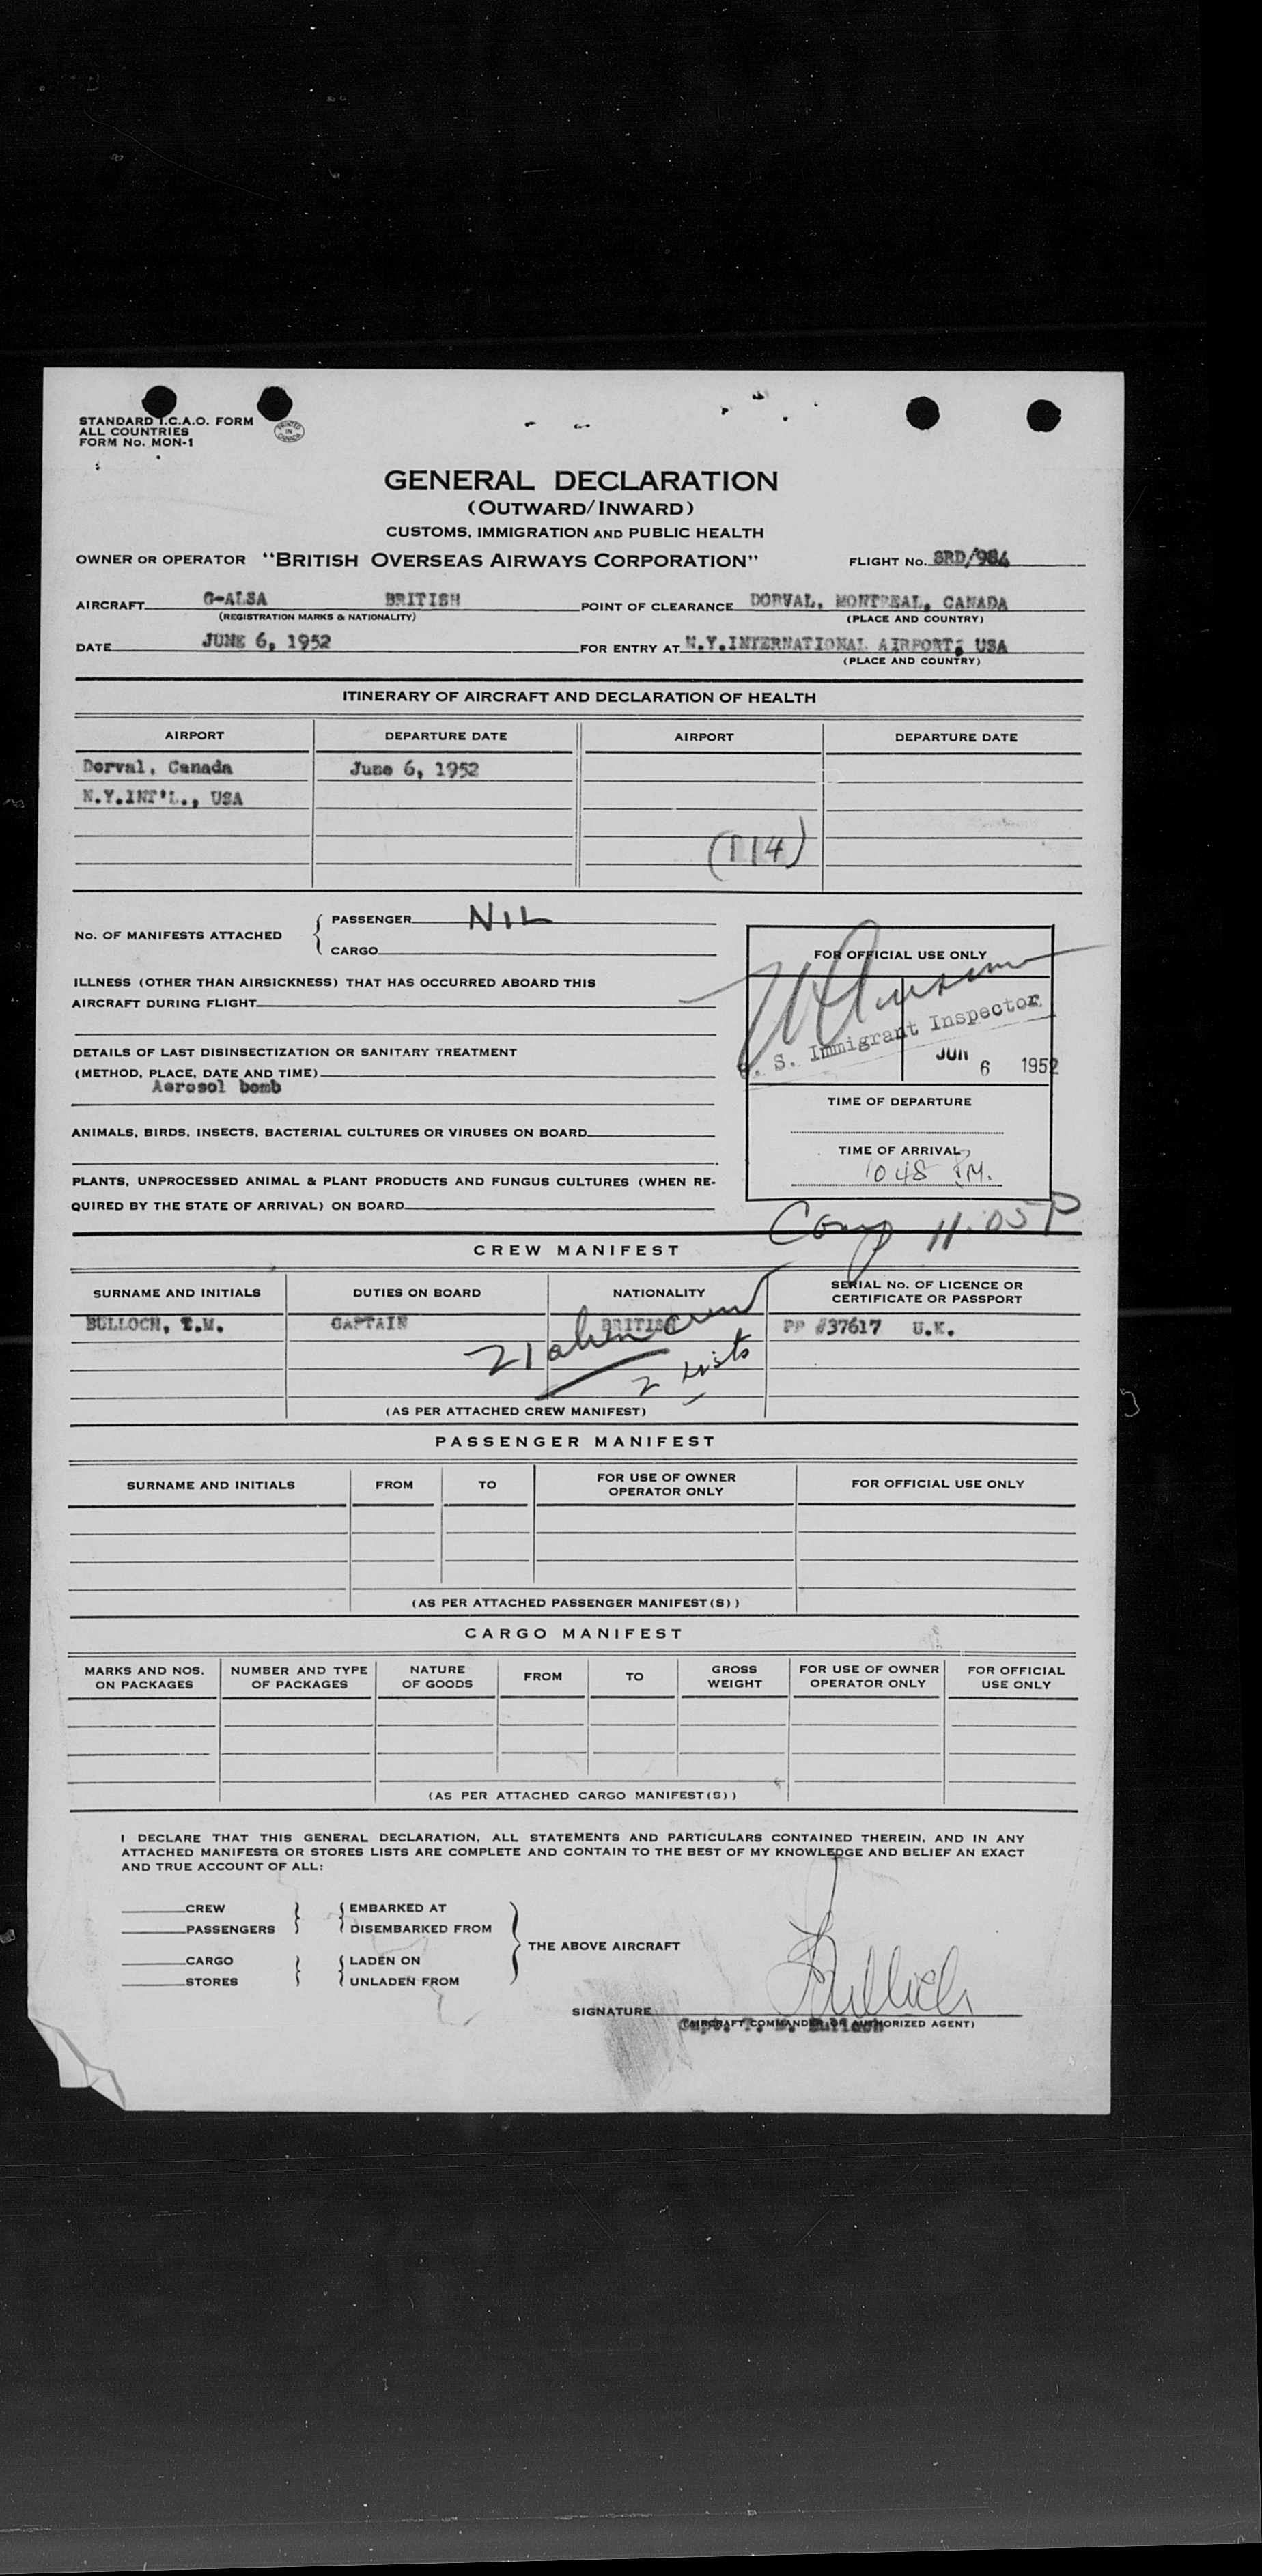 STANDARD I.C.A.O. FORM
ALL COUNTRIES
FORM No. MON-1
PRINTED IN CANADA
GENERAL DECLARATION
(OUTWARD/INWARD)
CUSTOMS, IMMIGRATION AND PUBLIC HEALTH
OWNER OR OPERATOR "BRITISH OVERSEAS AIRWAYS CORPORATION" FLIGHT No. SRD/984
AIRCRAFT G-ALSA BRITISH POINT OF CLEARANCE DORVAL, MONTREAL, CANADA
(REGISTRATION MARKS & NATIONALITY) (PLACE AND COUNTRY)
DATE JUNE 6, 1952 FOR ENTRY AT N.Y.INTERNATIONAL AIRPORT, USA
(PLACE AND COUNTRY)
ITINERARY OF AIRCRAFT AND DECLARATION OF HEALTH
AIRPORT DEPARTURE DATE AIRPORT DEPARTURE DATE
Dorval, Canada June 6, 1952
N.Y.INT'L., USA
(114)
No. OF MANIFESTS ATTACHED { PASSENGER NIL
CARGO
FOR OFFICIAL USE ONLY
ILLNESS (OTHER THAN AIRSICKNESS) THAT HAS OCCURRED ABOARD THIS
AIRCRAFT DURING FLIGHT
S. Immigrant Inspector
JUN 6 1952
DETAILS OF LAST DISINSECTIZATION OR SANITARY TREATMENT
(METHOD, PLACE, DATE AND TIME)
Aerosol bomb
TIME OF DEPARTURE
ANIMALS, BIRDS, INSECTS, BACTERIAL CULTURES OR VIRUSES ON BOARD
TIME OF ARRIVAL
1048 P.M.
PLANTS, UNPROCESSED ANIMAL & PLANT PRODUCTS AND FUNGUS CULTURES (WHEN RE-
QUIRED BY THE STATE OF ARRIVAL) ON BOARD
Comp 11.05 P
CREW MANIFEST
SURNAME AND INITIALS DUTIES ON BOARD NATIONALITY SERIAL No. OF LICENCE OR CERTIFICATE OR PASSPORT
BULLOCH, T.M. CAPTAIN BRITISH PP #37617 U.K.
21 alien crew
2 Lists
(AS PER ATTACHED CREW MANIFEST)
PASSENGER MANIFEST
SURNAME AND INITIALS FROM TO FOR USE OF OWNER OPERATOR ONLY FOR OFFICIAL USE ONLY
(AS PER ATTACHED PASSENGER MANIFEST(S))
CARGO MANIFEST
MARKS AND NOS. ON PACKAGES NUMBER AND TYPE OF PACKAGES NATURE OF GOODS FROM TO GROSS WEIGHT FOR USE OF OWNER OPERATOR ONLY FOR OFFICIAL USE ONLY
(AS PER ATTACHED CARGO MANIFEST(S))
I DECLARE THAT THIS GENERAL DECLARATION, ALL STATEMENTS AND PARTICULARS CONTAINED THEREIN, AND IN ANY
ATTACHED MANIFESTS OR STORES LISTS ARE COMPLETE AND CONTAIN TO THE BEST OF MY KNOWLEDGE AND BELIEF AN EXACT
AND TRUE ACCOUNT OF ALL:
CREW EMBARKED AT
PASSENGERS DISEMBARKED FROM
THE ABOVE AIRCRAFT
CARGO LADEN ON
STORES UNLADEN FROM
SIGNATURE Bulloch
(AIRCRAFT COMMANDER OR AUTHORIZED AGENT)
Capt. T. M. Bulloch